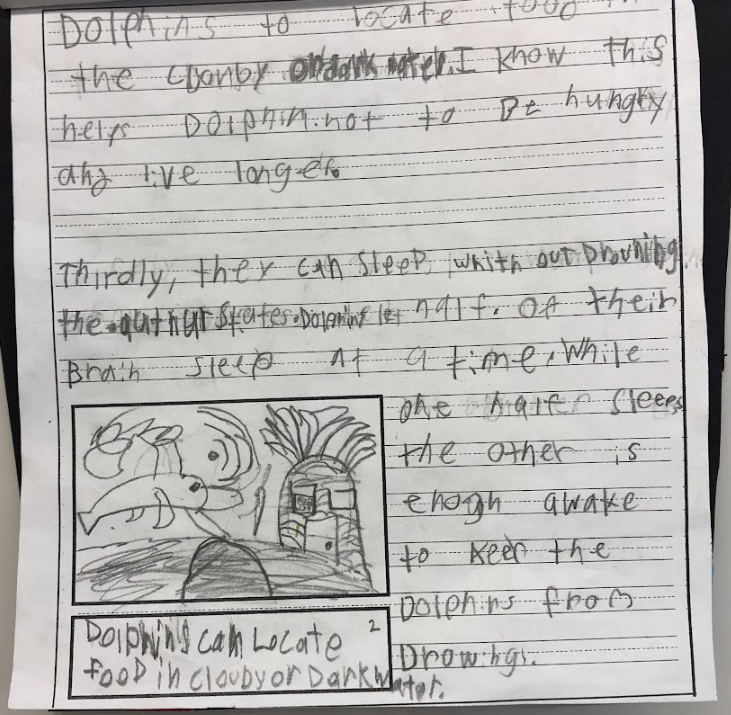 Dolphins to locate food in
the cloudy or dark water. I know this
helps Dolphin. not to Be hungry
and live longer.
Thirdly, they can sleep whith out Drouning.
the authur states. Dolphins let half. Of their
Brain sleep at a time. While
one halfer sleeps
the other is
enogh awake
to keep the
Dolphins from
Drowings.
Dolphins can Locate 2
food in cloudy or Dark Water.